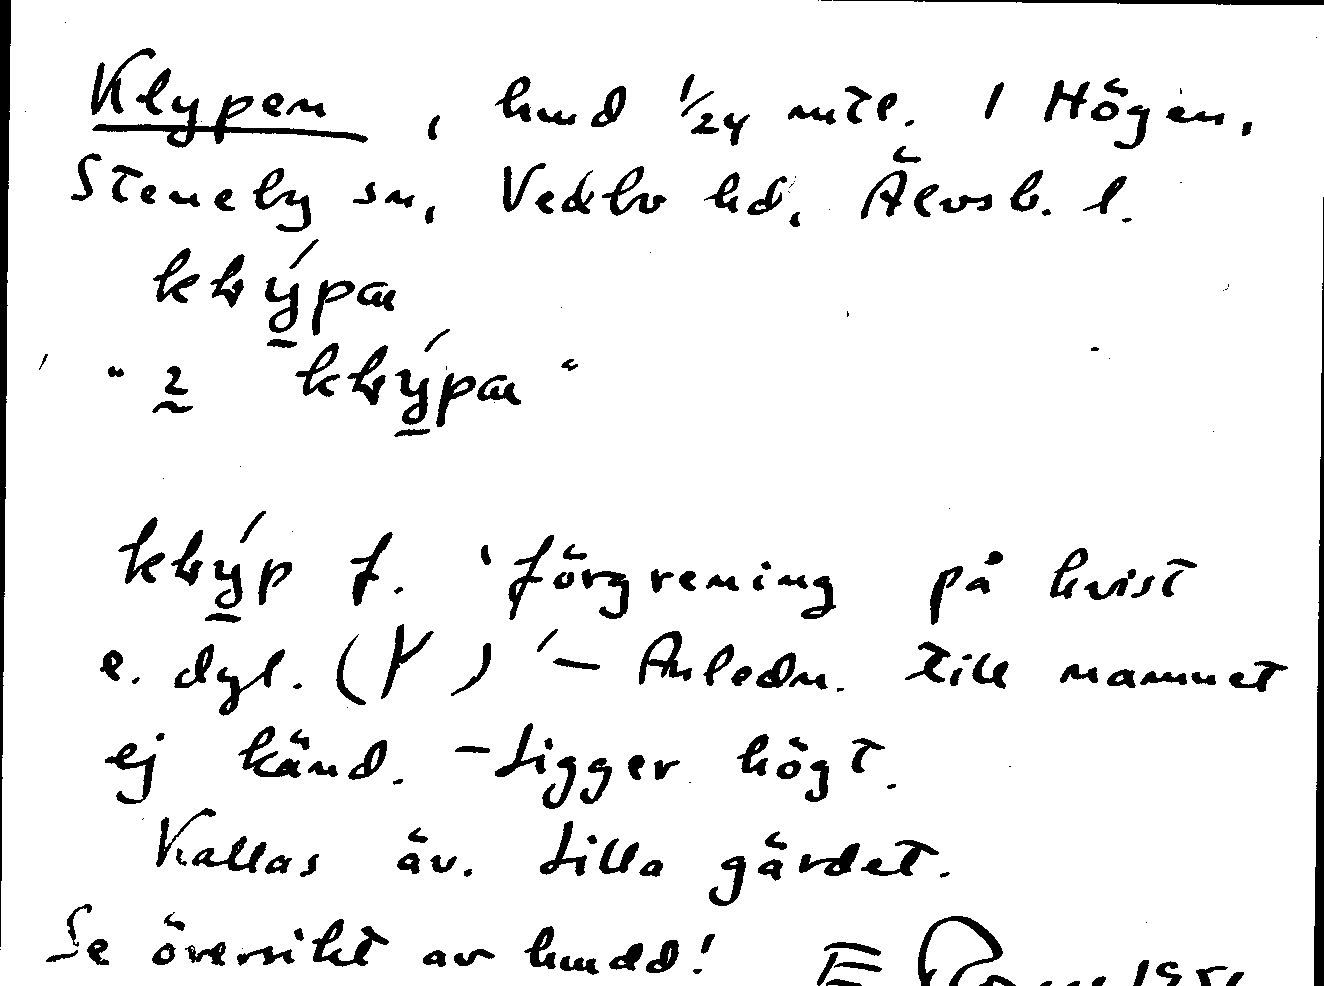 Klypen, hmd 1/24 mtl. i Högen,
Steneby sn, Vedbo hd, Älvsb. l.
klýpa
"2 klýpa"
klýp f. 'förgrening på kvist
e. dyl. ( ) ' — Anledn. till namnet
ej känd. — Ligger högt.
Kallas äv. Lilla gärdet.
Se översikt av hmdd!